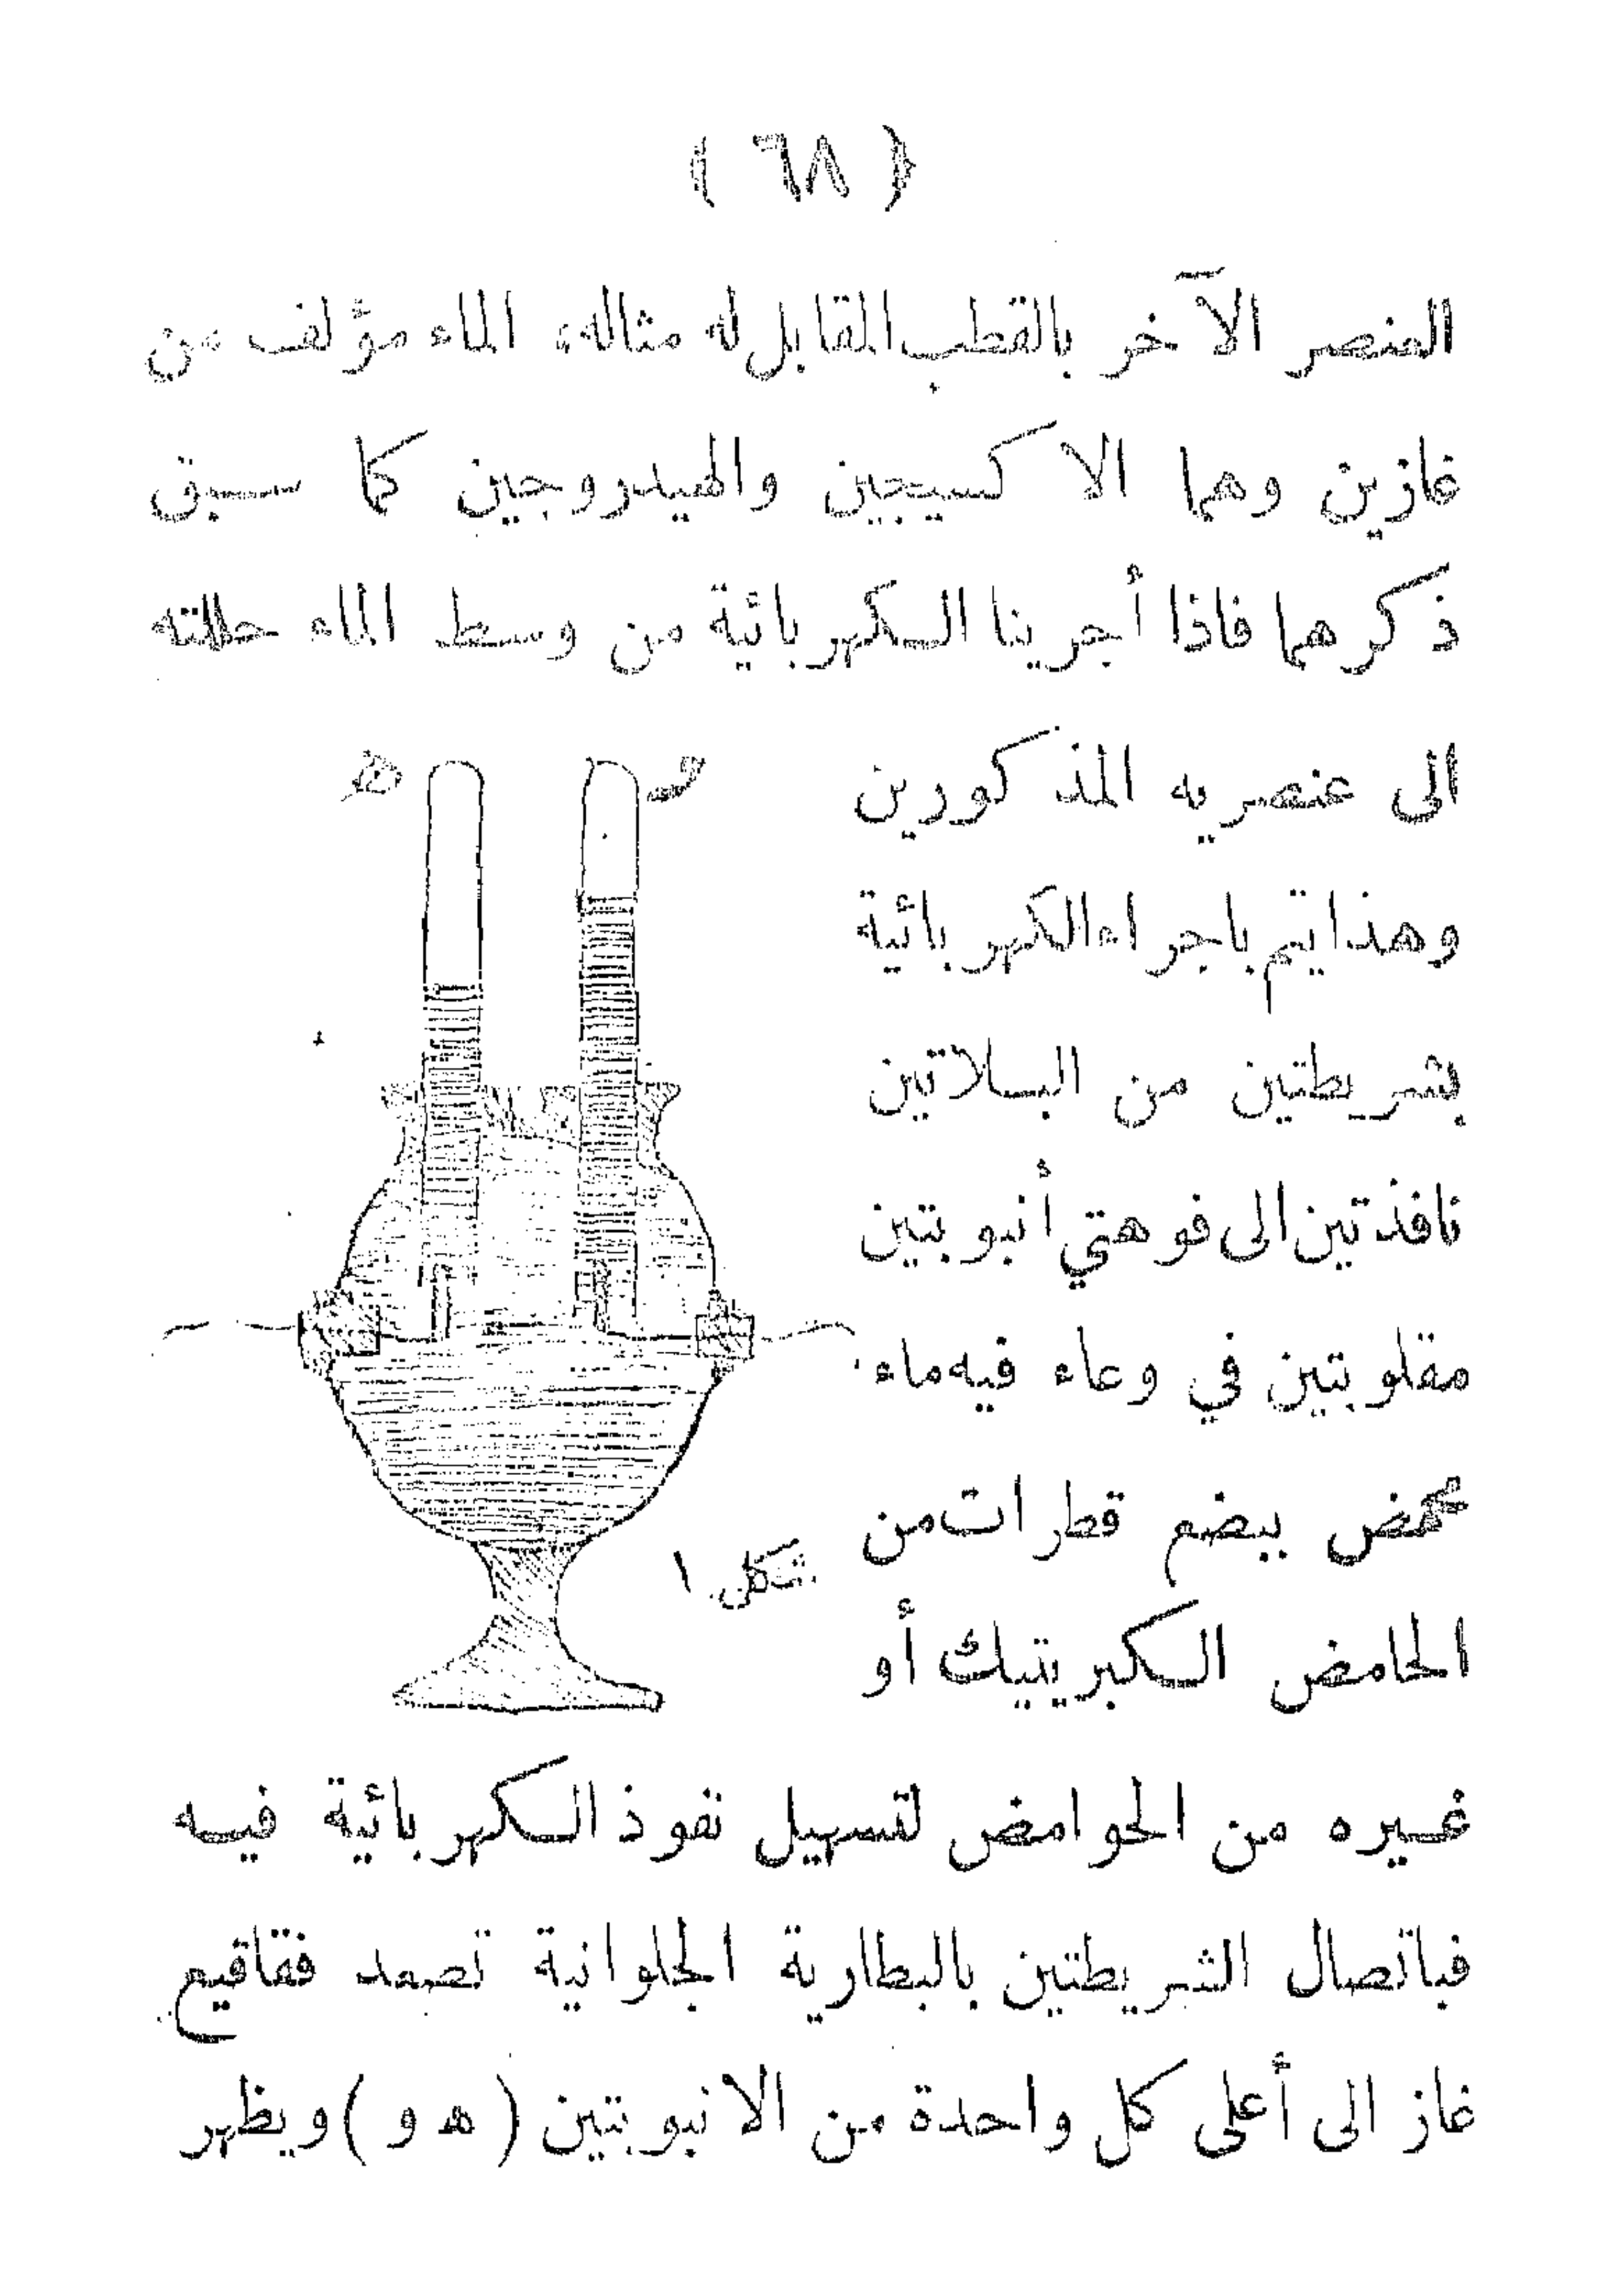 ( ٦٨ )
العنصر الآخر بالقطب المقابل له مثاله، الماء مؤلف من
غازين وهما الاكسيجين والهيدروجين كما سبق
ذكرهما فاذا أجرينا الكهربائية من وسط الماء حللته
الى عنصريه المذكورين
وهذا يتم باجراء الكهربائية
بشريطتين من البلاتين
نافذتين الى فوهتي أنبوبتين
مقلوبتين في وعاء فيه ماء
محمض ببضع قطرات من
الحامض الكبريتيك أو
ه
و
شكل ١
غيره من الحوامض لتسهيل نفوذ الكهربائية فيه
فباتصال الشريطتين بالبطارية الجلوانية تصعد فقاقيع
غاز الى أعلى كل واحدة من الانبوبتين ( ه و ) ويظهر